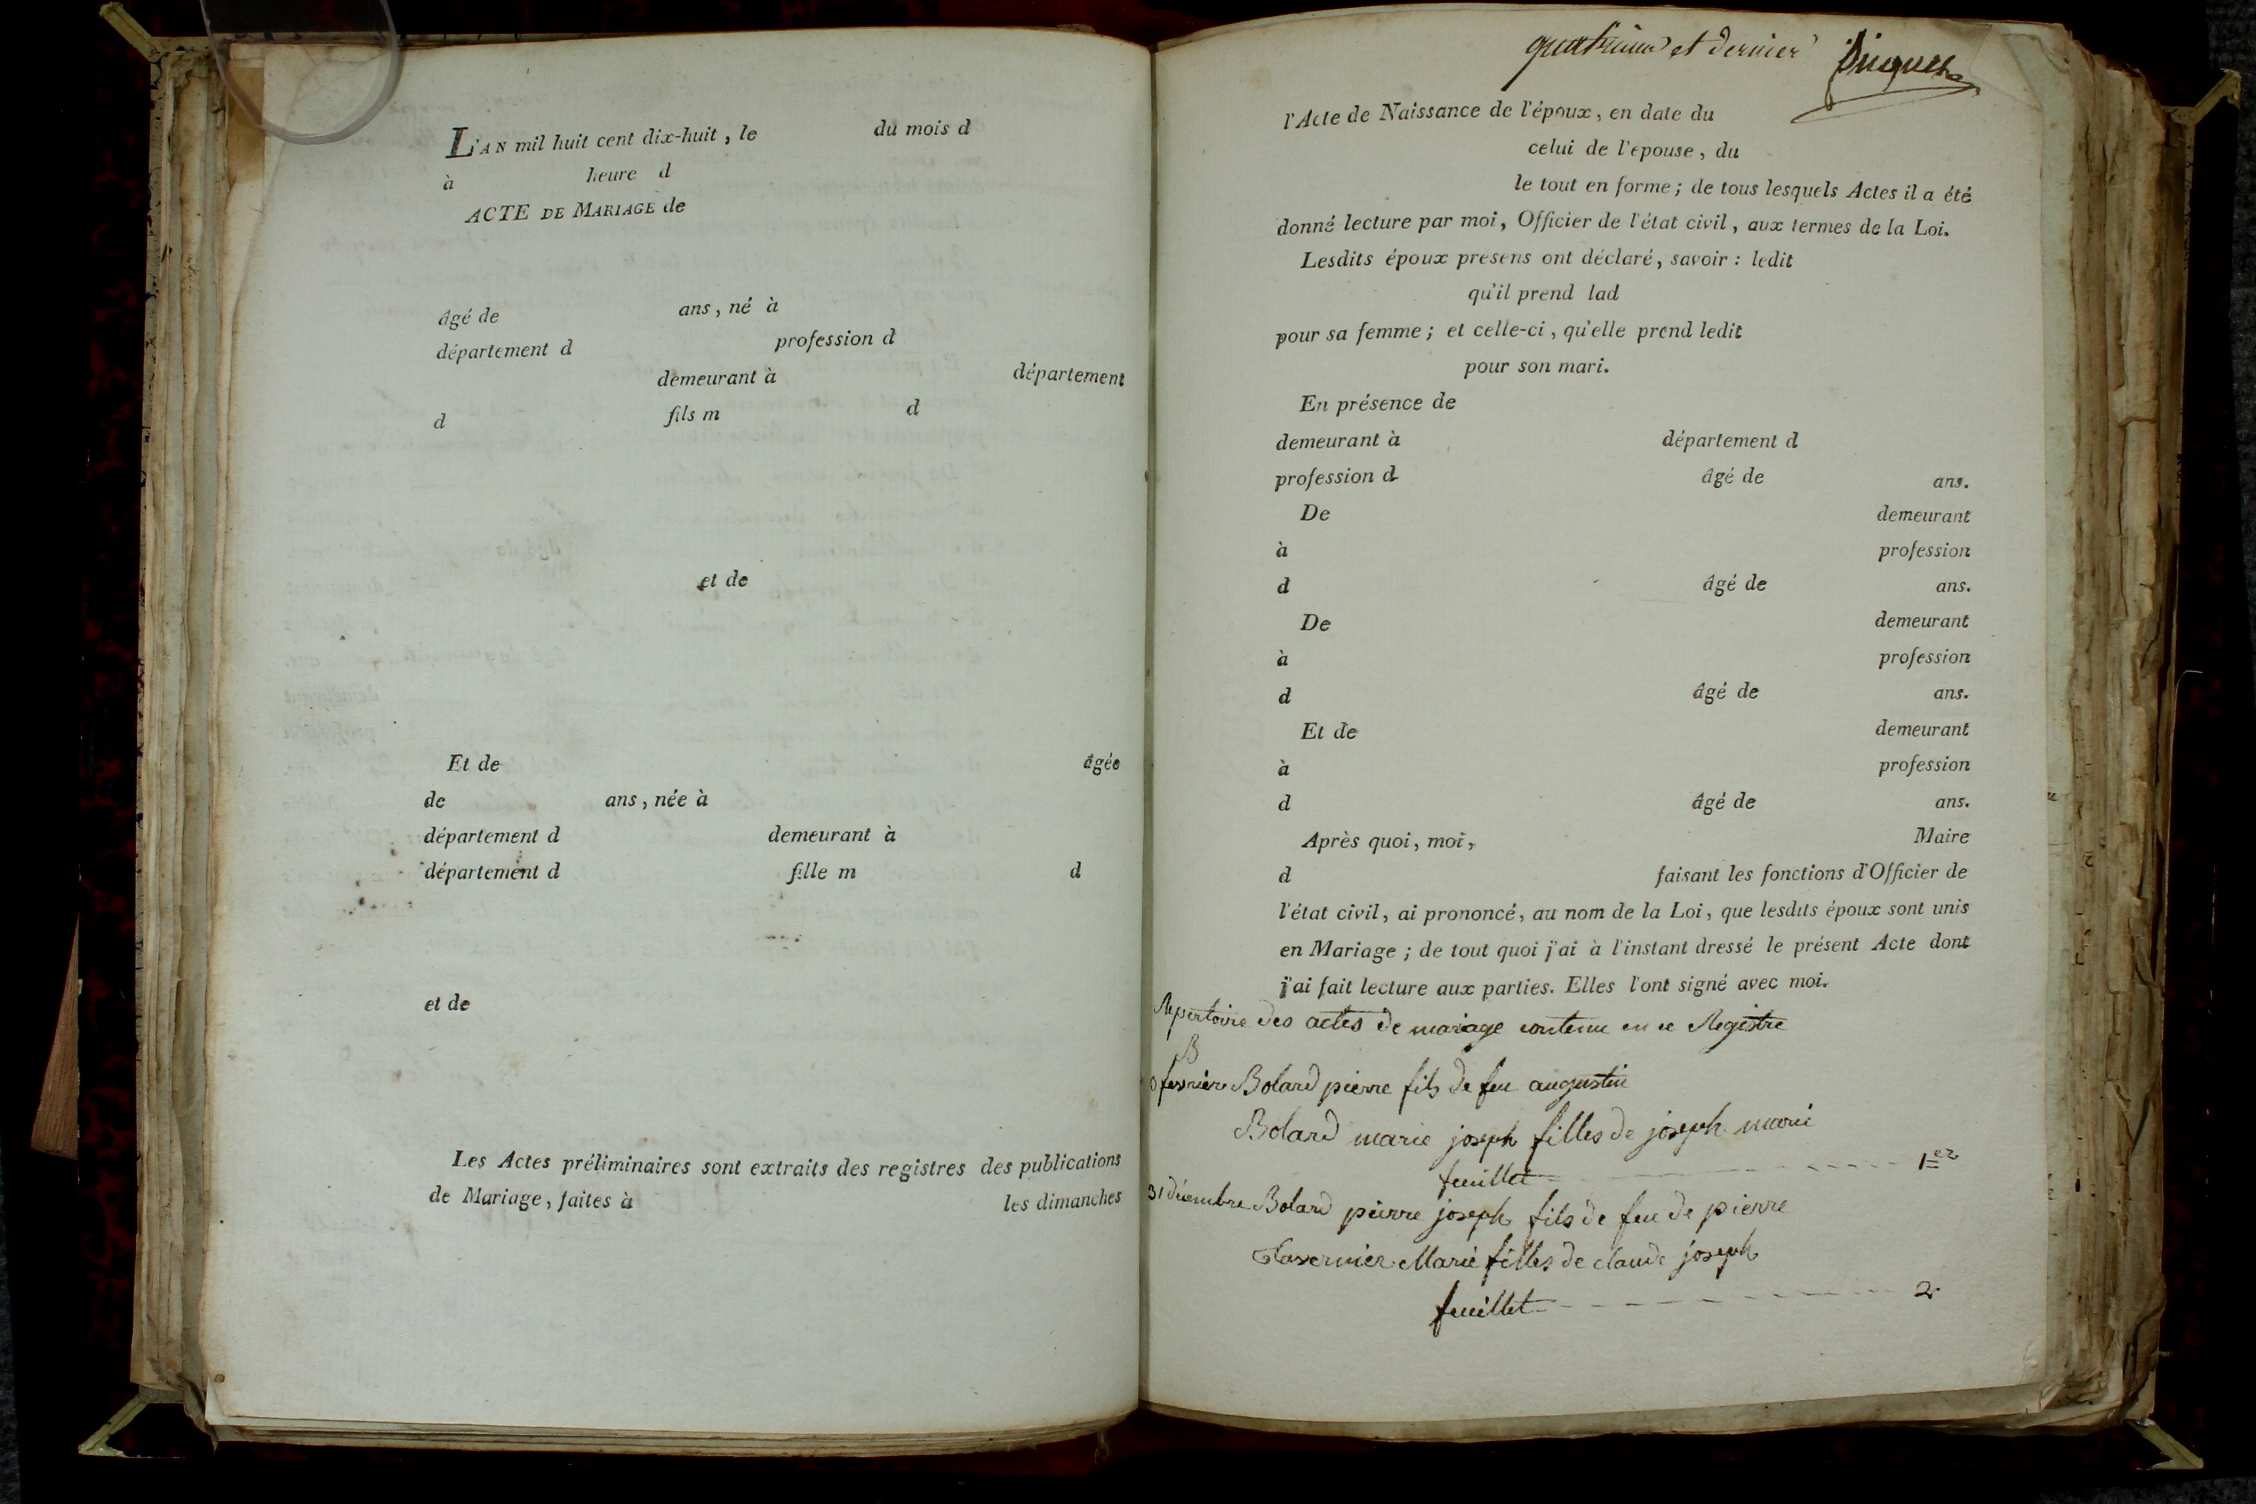 L'AN mil huit cent dix-huit, le du mois d
à heure d
ACTE DE MARIAGE de
âgé de ans, né à
département d profession d
demeurant à département
d fils m d
et de
Et de âgée
de ans, née à
département d demeurant à
département d fille m d
et de
Les Actes préliminaires sont extraits des registres des publications
de Mariage, faites à les dimanches
quatrieme et dernier
l'Acte de Naissance de l'époux, en date du
celui de l'epouse, du
le tout en forme; de tous lesquels Actes il a été
donné lecture par moi, Officier de l'état civil, aux termes de la Loi.
Lesdits époux presens ont déclaré, savoir: ledit
qu'il prend lad
pour sa femme; et celle-ci, qu'elle prend ledit
pour son mari.
En présence de
demeurant à département d
profession d âgé de ans.
De demeurant
à profession
d âgé de ans.
De demeurant
à profession
d âgé de ans.
Et de demeurant
à profession
d âgé de ans.
Après quoi, moi, Maire
d faisant les fonctions d'Officier de
l'état civil, ai prononcé, au nom de la Loi, que lesdits époux sont unis
en Mariage; de tout quoi j'ai à l'instant dressé le présent Acte dont
j'ai fait lecture aux parties. Elles l'ont signé avec moi.
Repertoire des actes de mariage contenu en ce Registre
B
fevrier Bolard pierre fils de feu augustin
Bolard marie joseph filles de joseph marie
feuillet 1er
31 décembre Bolard pierre joseph fils de feu de pierre
Tavernier Marie filles de claude joseph
feuillet 2